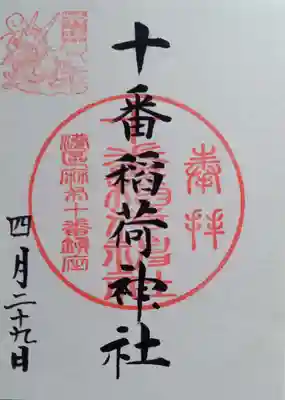 奉拝
十番稲荷神社
港区麻布十番鎮座
四月二十九日